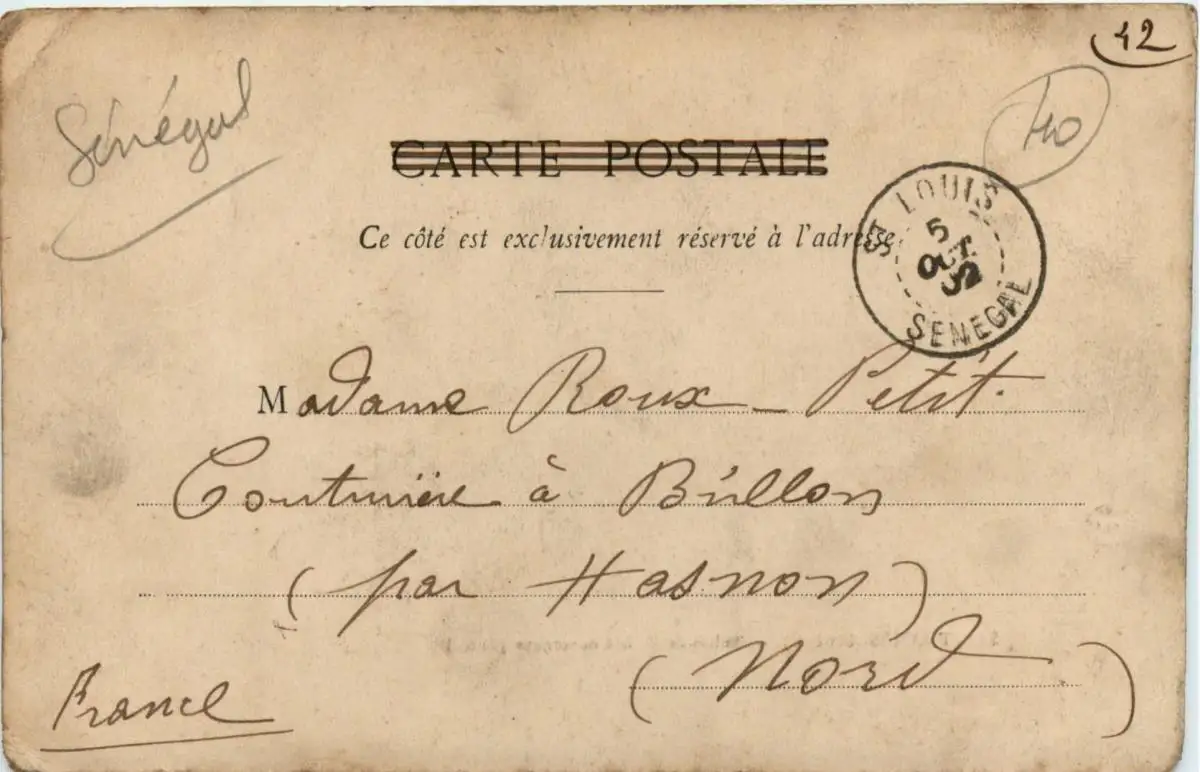 42
Sénégal
40
CARTE POSTALE
Ce côté est exclusivement réservé à l'adresse.
ST LOUIS
5
OCT
02
SENEGAL
Madame Roux - Petit.
Couturière à Brillon
(par Hasnon)
(Nord)
France